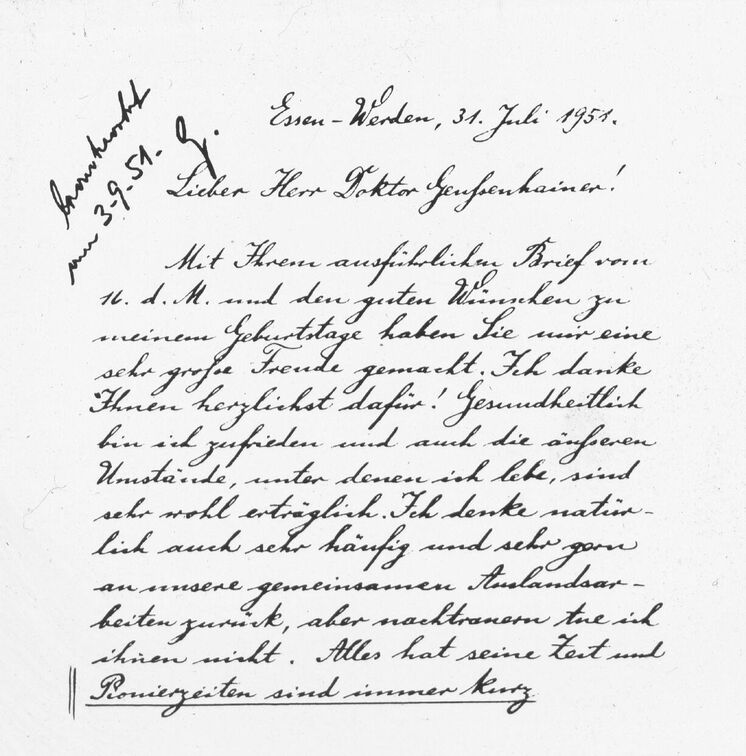 beantwortet
am 3.9.51. G.
Essen-Werden, 31. Juli 1951.
Lieber Herr Doktor Geußenhainer!
Mit Ihrem ausführlichen Brief vom
16. d. M. und den guten Wünschen zu
meinem Geburtstage haben Sie mir eine
sehr große Freude gemacht. Ich danke
Ihnen herzlichst dafür! Gesundheitlich
bin ich zufrieden und auch die äußeren
Umstände, unter denen ich lebe, sind
sehr wohl erträglich. Ich denke natür-
lich auch sehr häufig und sehr gern
an unsere gemeinsamen Auslandsar-
beiten zurück, aber nachtrauern tue ich
ihnen nicht. Alles hat seine Zeit und
Pionierzeiten sind immer kurz